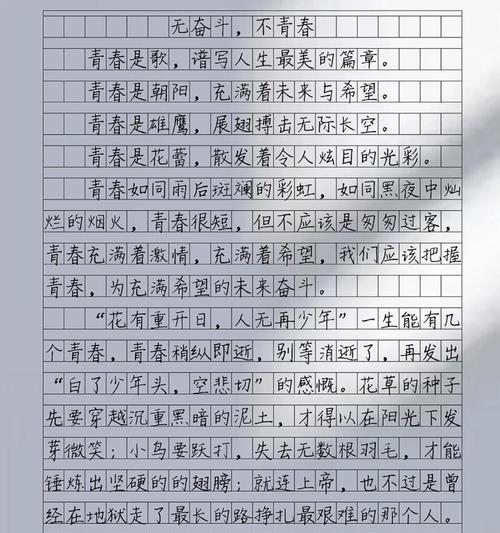 无奋斗，不青春
青春是歌，谱写人生最美的篇章。
青春是朝阳，充满着未来与希望。
青春是雄鹰，展翅搏击无际长空。
青春是花蕾，散发着令人炫目的光彩。
青春如同雨后斑斓的彩虹，如同黑夜中灿
烂的烟火，青春很短，但不应该是匆匆过客，
青春充满着激情，充满着希望，我们应该把握
青春，为充满希望的未来奋斗。
“花有重开日，人无再少年”一生能有几
个青春，青春稍纵即逝，别等消逝了，再发出
“白了少年头，空悲切”的感慨。花草的种子
先要穿越沉重黑暗的泥土，才得以在阳光下发
芽微笑；小鸟要跃打，失去无数根羽毛，才能
锤炼出坚硬的的翅膀；就连上帝，也不过是曾
经在地狱走了最长的路挣扎最艰难的那个人。